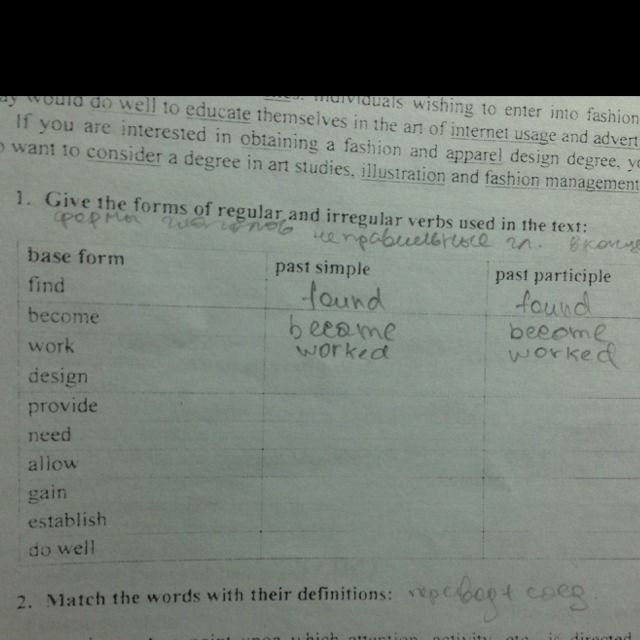 Individuals wishing to enter into fashion
would do well to educate themselves in the art of internet usage and advert
If you are interested in obtaining a fashion and apparel design degree,
want to consider a degree in art studies, illustration and fashion management
1. Give the forms of regular and irregular verbs used in the text:
формы глаголов неправильные гл.
base form past simple past participle
find found found
become became become
work worked worked
design
provide
need
allow
gain
establish
do well
2. Match the words with their definitions: перевод + соед.